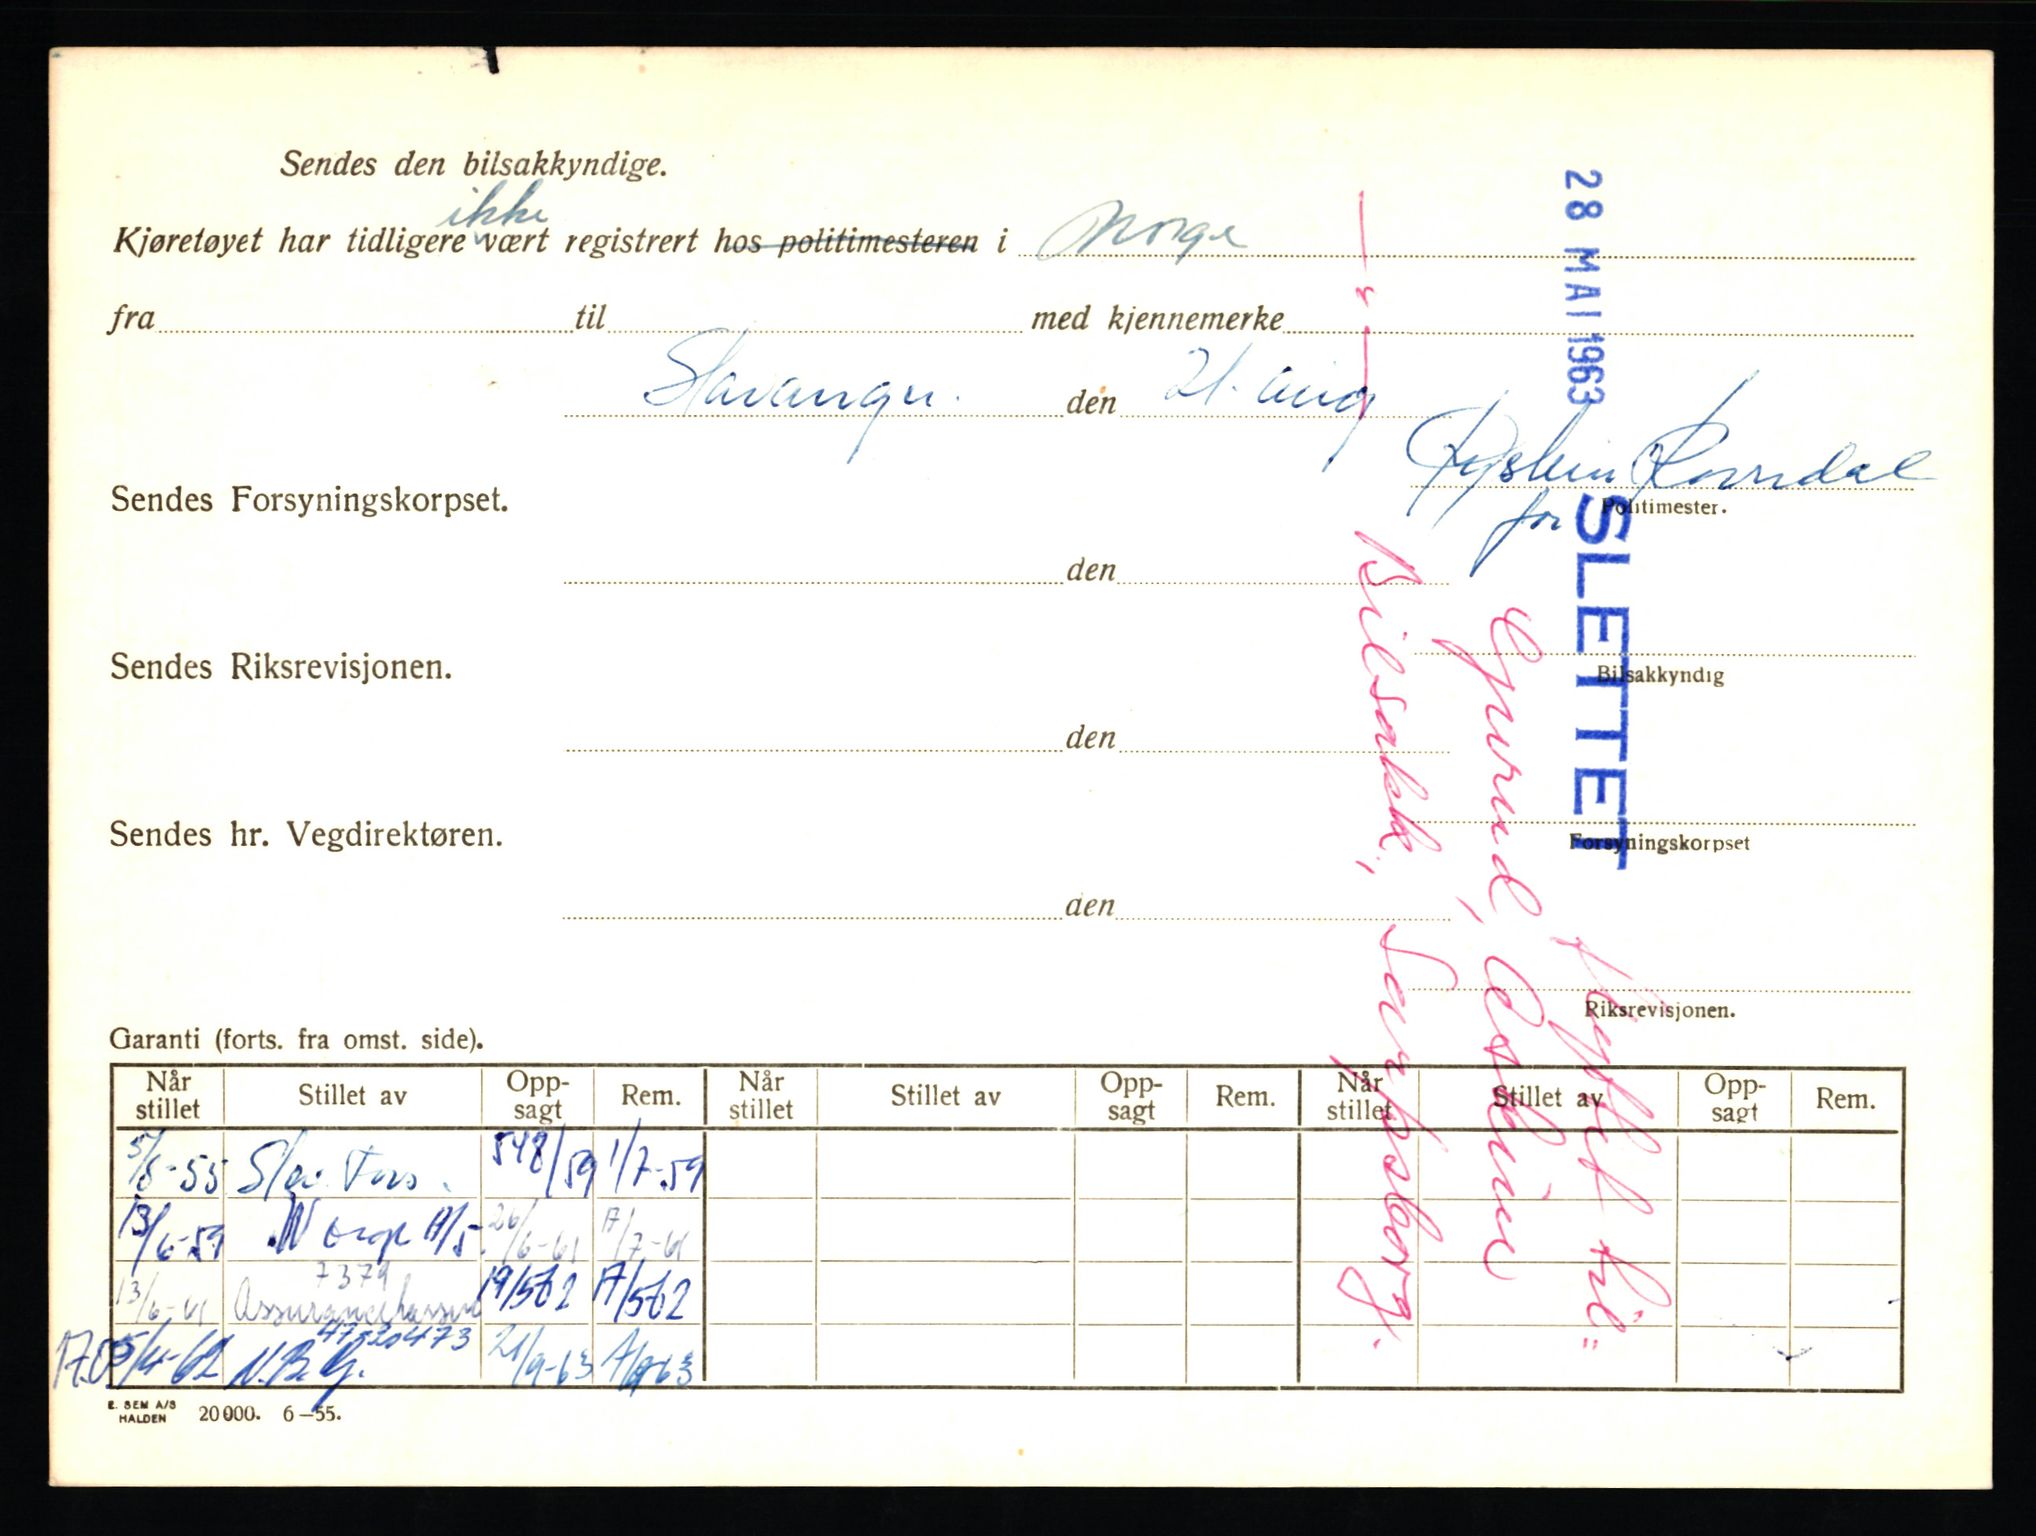 Sendes den bilsakkyndige.
ikke
Kjøretøyet har tidligere vært registrert hos politimesteren i Norge
fra til med kjennemerke
Stavanger. den 21. aug
for Politimester.
Sendes Forsyningskorpset.
den
Bilsakkyndig
Sendes Riksrevisjonen.
den
Forsyningskorpset
Sendes hr. Vegdirektøren.
den
Riksrevisjonen.
28 MAI 1963
SLETTET
til:
Bilsakk., Sarpsborg.
Garanti (forts. fra omst. side).
Når stillet Stillet av Opp-sagt Rem. Når stillet Stillet av Opp-sagt Rem. Når stillet Stillet av Opp-sagt Rem.
5/5-55 548/59 1/7-59
13/6-59 Norge A/S. 26/6-61 17/7-61
7379
13/6-61 19/562 17/562
5/4-62 21/9-63
E. SEM A/S
HALDEN 20000. 6-55.